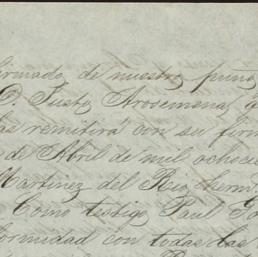 firmado, de nuestro puño
D. Justo Arosemena, q
las remitirá con su firm
de Abril de mil ochocie
Martinez del Rio, herm
Como testigo, Paul
formidad con todas las